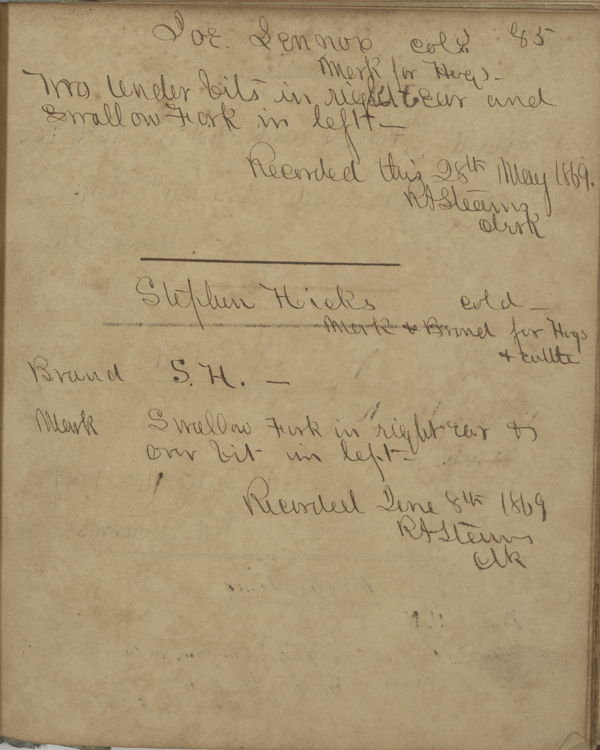 Joe. Lennox cold 85
Mark for Hogs -
Two under bits in right ear and
Swallow Fork in left -
Recorded this 28th May 1869.
RA Stearns
Clerk
Stephen Hicks cold -
Mark & Brand for Hogs
& cattle
Brand S. H. -
Mark Swallow Fork in right ear &
over bit in left -
Recorded June 8th 1869
RA Stearns
Clk